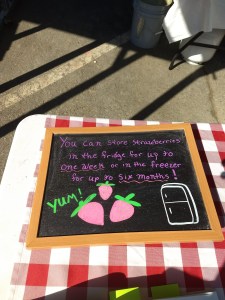 You can store strawberries
in the fridge for up to
One Week or in the freezer
for up to Six Months!
Yum!